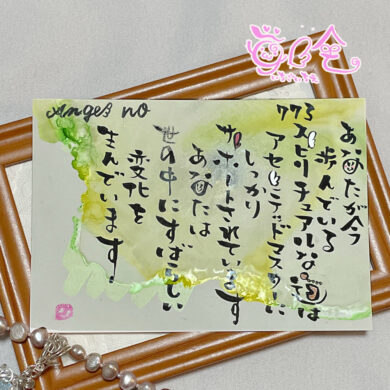 Angel no
773
あなたが今
歩んでいる
スピリチュアルな道は
アセンデッドマスターに
しっかり
サポートされています
あなたは
世の中にすばらしい
変化を
生んでいます!